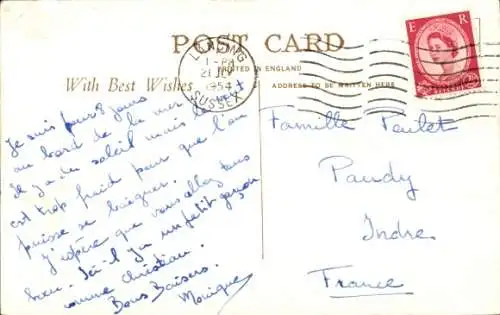 POST CARD
PRINTED IN ENGLAND
With Best Wishes
ADDRESS TO BE WRITTEN HERE
LANCING
1-PM
1954
SUSSEX
E R
Je suis pour 8 jours
au bord de la mer.
Il y a du soleil mais le vent
est trop froid pour que l'on
puisse se baigner.
J'espère que vous allez tous
bien. Ici il y a un petit garçon
comme Christian.
Bons Baisers.
Monique
Famille
Indre
France